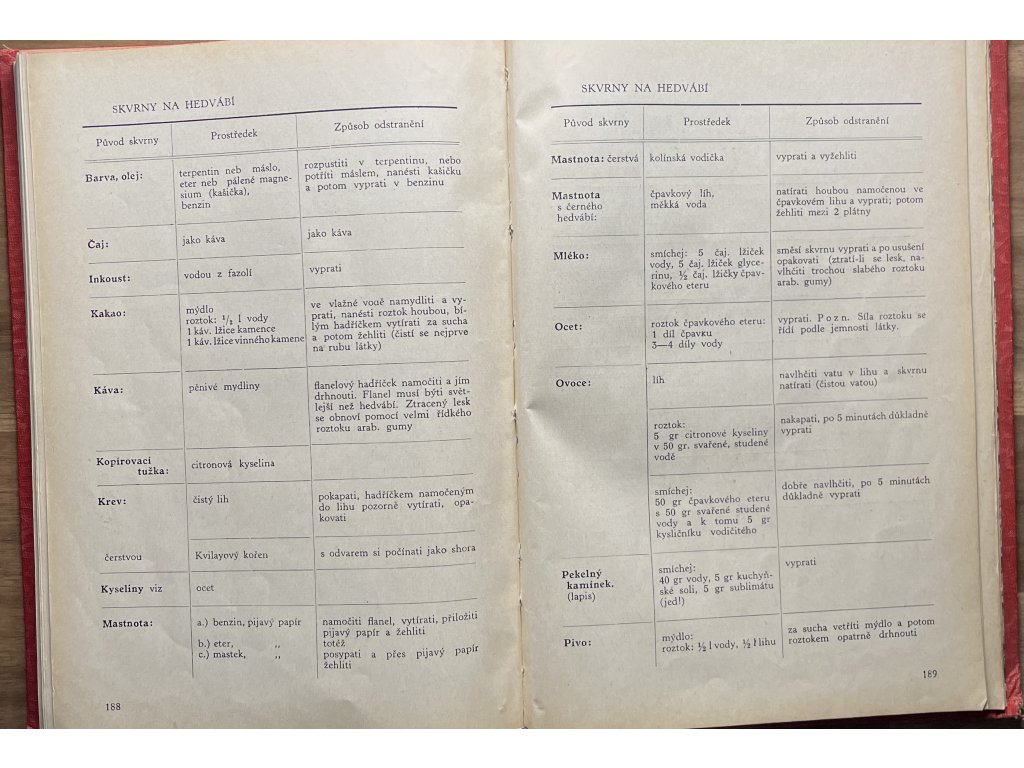 SKVRNY NA HEDVÁBÍ
Původ skvrny Prostředek Způsob odstranění
Barva, olej: terpentin neb máslo, rozpustiti v terpentinu, nebo
eter neb pálené magne- potříti máslem, nanésti kašičku
sium (kašička), a potom vyprati v benzinu
benzin
Čaj: jako káva jako káva
Inkoust: vodou z fazolí vyprati
Kakao: mýdlo ve vlažné vodě namydliti a vy-
roztok: ¹/₂ l vody prati, nanésti roztok houbou, bí-
1 káv. lžíce kamence lým hadříčkem vytírati za sucha
1 káv. lžíce vinného kamene a potom žehliti (čistí se nejprve
na rubu látky)
Káva: pěnivé mydliny flanelový hadříček namočiti a jím
drhnouti. Flanel musí býti svět-
lejší než hedvábí. Ztracený lesk
se obnoví pomocí velmi řídkého
roztoku arab. gumy
Kopírovací
tužka: citronová kyselina
Krev: čistý lih pokapati, hadříčkem namočeným
do lihu pozorně vytírati, opa-
kovati
čerstvou Kvilayový kořen s odvarem si počínati jako shora
Kyseliny viz ocet
Mastnota: a.) benzin, pijavý papír namočiti flanel, vytírati, přiložiti
pijavý papír a žehliti
b.) eter, „ totéž
c.) mastek, „ posypati a přes pijavý papír
žehliti
188
SKVRNY NA HEDVÁBÍ
Původ skvrny Prostředek Způsob odstranění
Mastnota: čerstvá kolínská vodička vyprati a vyžehliti
Mastnota čpavkový líh, natírati houbou namočenou ve
s černého měkká voda čpavkovém lihu a vyprati; potom
hedvábí: žehliti mezi 2 plátny
Mléko: smíchej: 5 čaj. lžiček směsí skvrnu vyprati a po usušení
vody, 5 čaj. lžiček glyce- opakovati (ztratí-li se lesk, na-
rinu, ½ čaj. lžičky čpav- vlhčiti trochou slabého roztoku
kového eteru arab. gumy)
Ocet: roztok čpavkového eteru: vyprati. Pozn. Síla roztoku se
1 díl čpavku řídí podle jemnosti látky.
3—4 díly vody
Ovoce: líh navlhčiti vatu v lihu a skvrnu
natírati (čistou vatou)
roztok: nakapati, po 5 minutách důkladně
5 gr citronové kyseliny vyprati
v 50 gr. svařené, studené
vodě
smíchej: dobře navlhčiti, po 5 minutách
50 gr čpavkového eteru důkladně vyprati
s 50 gr svařené studené
vody a k tomu 5 gr
kysličníku vodičitého
Pekelný smíchej: vyprati
kamínek. 40 gr vody, 5 gr kuchyň-
(lapis) ské soli, 5 gr sublimátu
(jed!)
Pivo: mýdlo: za sucha vetříti mýdlo a potom
roztok: ½ l vody, ½ l lihu roztokem opatrně drhnouti
189